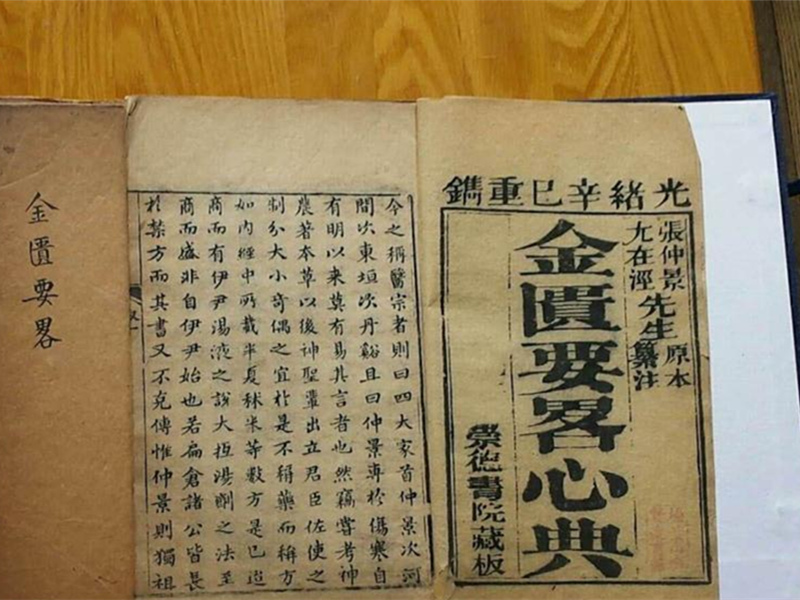 光緒辛巳重鐫
張仲景
尤在涇
先生
原本
纂注
金匱要畧心典
崇德書院藏板
今之稱醫宗者則曰四大家首仲景次河
間次東垣次丹谿且曰仲景專於傷寒自
有明以來莫有易其言者也然竊嘗考神
農著本草以後神聖輩出立君臣佐使之
制分大小奇偶之宜於是不稱藥而稱方
如內經中所載半夏秫米等數方是已迨
商而有伊尹湯液之說大抵湯劑之法至
商而盛非自伊尹始也若扁倉諸公皆長
於禁方而其書又不克傳惟仲景則獨祖
金匱要畧